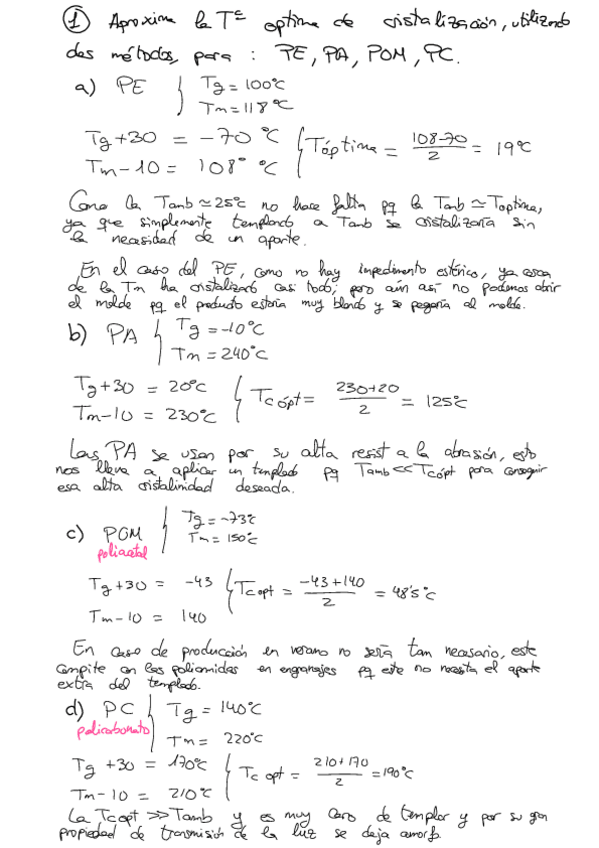 ① Aproxima la Tª optima de cristalización, utilizando
dos métodos, para : PE, PA, POM, PC.
a) PE { Tg = 100°C
Tm = 118°C
Tg+30 = -70 °C { Tóptima = 108-70 / 2 = 19°C
Tm-10 = 108° °C
Como la Tamb ≃ 25°C no hace falta pq la Tamb ≃ Toptima,
ya que simplemente templando a Tamb se cristalizaría sin
la necesidad de un aporte.
En el caso del PE, como no hay impedimento estérico, ya cerca
de la Tm ha cristalizado casi todo, pero aún así no podemos abrir
el molde pq el producto estaría muy blando y se pegaría al molde.
b) PA { Tg = -10°C
Tm = 240°C
Tg+30 = 20°C { Tc ópt = 230+20 / 2 = 125°C
Tm-10 = 230°C
Las PA se usan por su alta resist a la abrasión, esto
nos lleva a aplicar un templado pq Tamb << Tcópt para conseguir
esa alta cristalinidad deseada.
c) POM { Tg = -73°C
poliacetal Tm = 150°C
Tg+30 = -43 { Tc opt = -43+140 / 2 = 48'5°C
Tm-10 = 140
En caso de producción en verano no sería tan necesario, este
compite con las poliamidas en engranajes pq este no necesita el aporte
extra del templado.
d) PC { Tg = 140°C
policarbonato Tm = 220°C
Tg +30 = 170°C { Tc opt = 210+170 / 2 = 190°C
Tm-10 = 210°C
La Tcopt >> Tamb y es muy caro de templar y por su gran
propiedad de transmisión de la luz se deja amorfo.